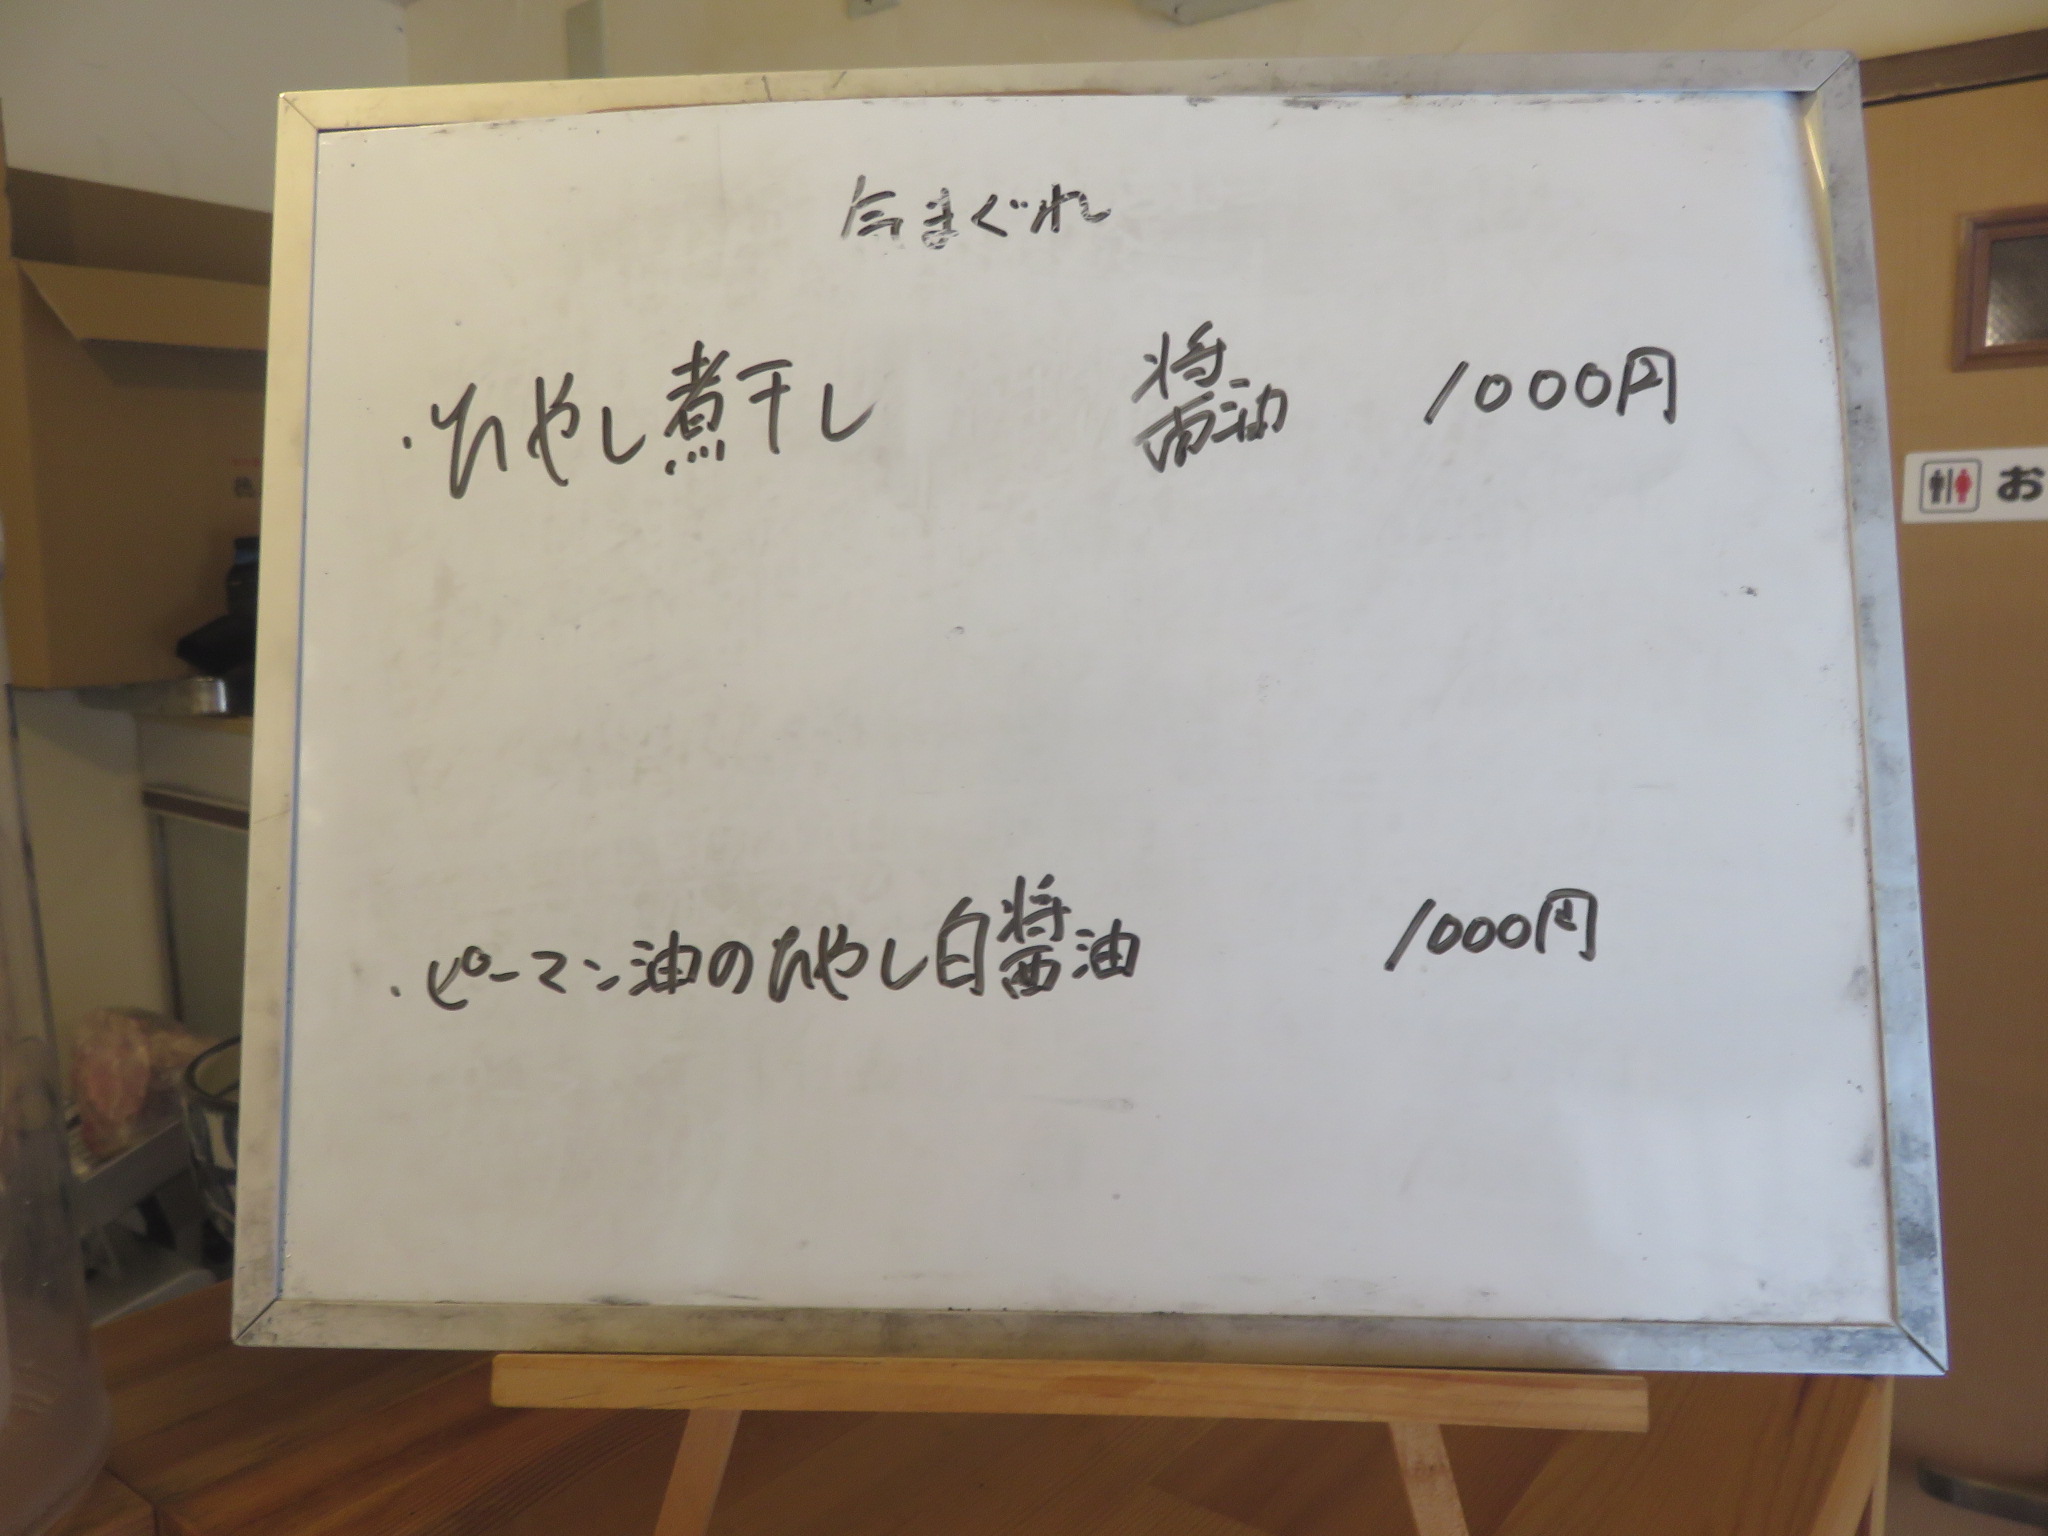 気まぐれ
・ひやし煮干し 醤油 1000円
お
・ピーマン油のひやし白醤油 1000円